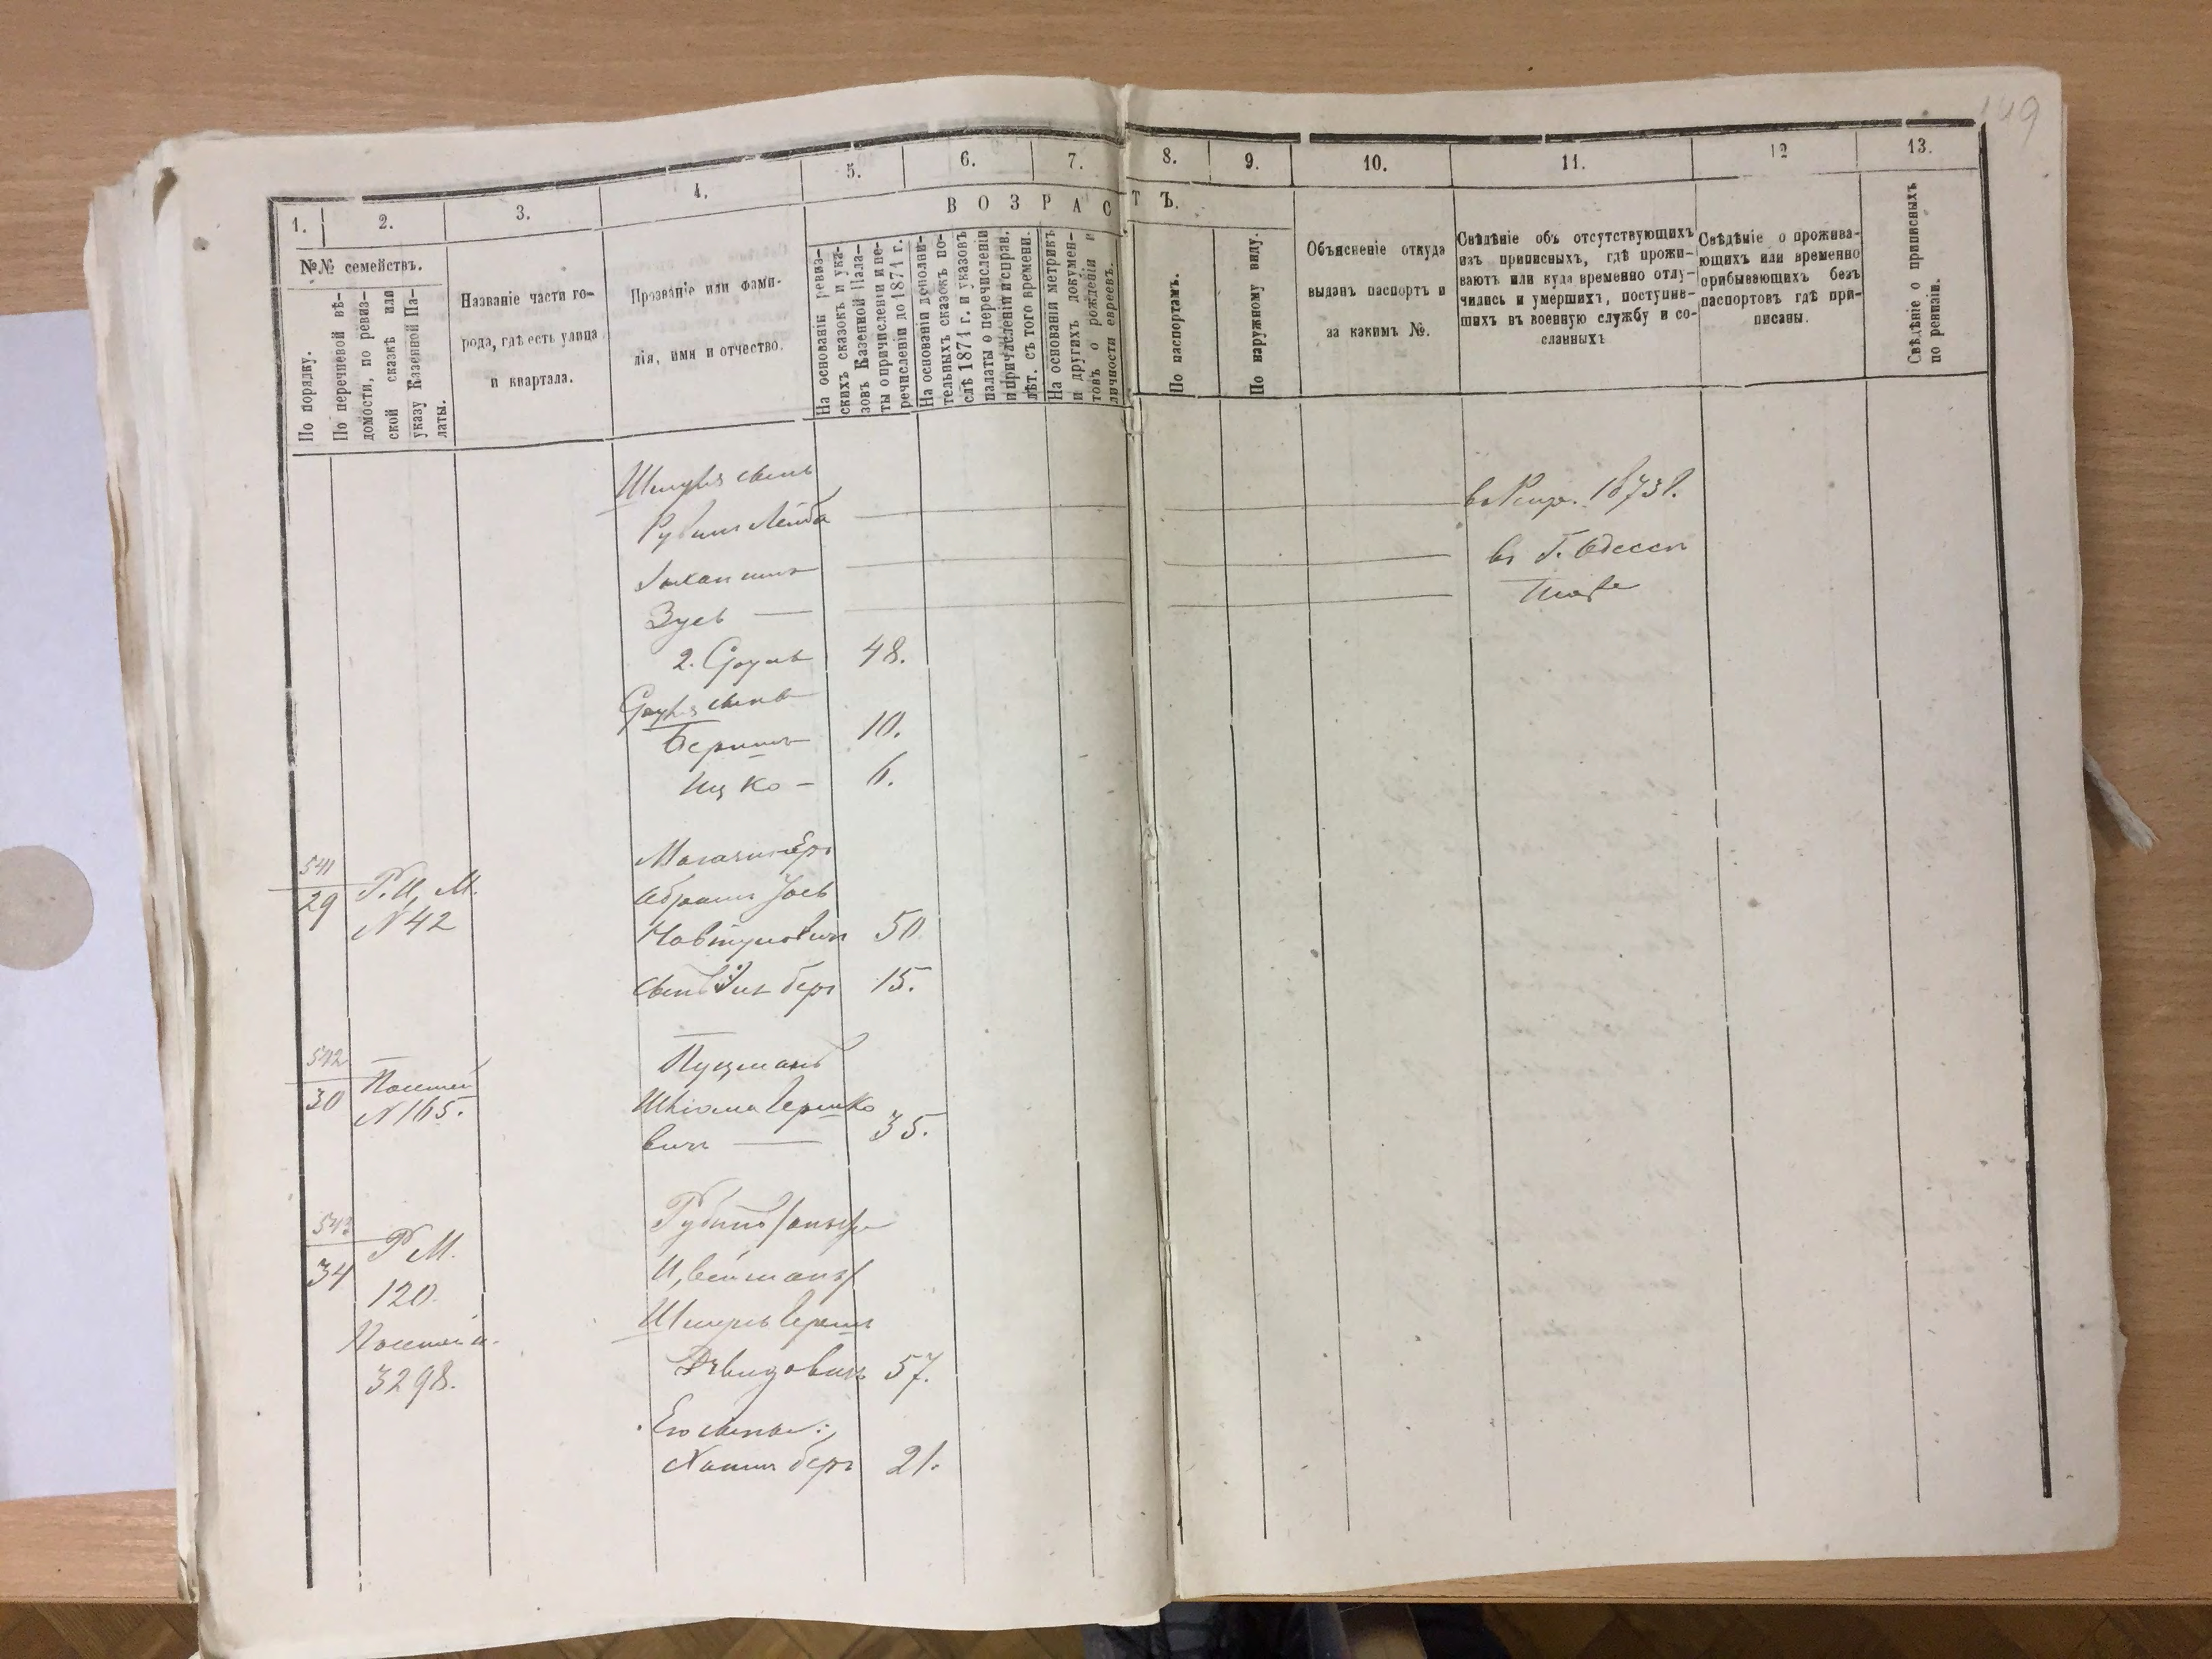 149
1.
2.
3.
4.
5.
6.
7.
8.
9.
10.
11.
12
13.
ВОЗРАСТЪ.
№№ семействъ.
По порядку.
По перечневой вѣ-
домости, по ревиз-
ской сказкѣ или
указу Казенной Па-
латы.
Названіе части го-
рода, гдѣ есть улица
и квартала.
Прозваніе или фами-
лія, имя и отчество.
На основаніи ревиз-
скихъ сказокъ и ука-
зовъ Казенной Пала-
ты о причисленіи и пе-
речисленіи до 1871 г.
На основаніи дополни-
тельныхъ сказокъ по-
слѣ 1871 г. и указовъ
палаты о перечисленіи
и причисленіи исправ.
лѣт. съ того времени.
На основаніи метрикъ
и другихъ докумен-
товъ о рожденіи и
личности евреевъ.
По паспортамъ.
По наружному виду.
Объясненіе откуда
выданъ паспортъ и
за какимъ №.
Свѣдѣніе объ отсутствующихъ
изъ приписныхъ, гдѣ прожи-
ваютъ или куда временно отлу-
чились и умершихъ, поступив-
шихъ въ военную службу и со-
сланныхъ
Свѣдѣніе о прожива-
ющихъ или временно
прибывающихъ безъ
паспортовъ гдѣ при-
писаны.
Свѣдѣніе о приписныхъ
по ревизіи.
Рувинъ Лейба
1873
въ г. Одессѣ
Зусь —
2. Сруль 48.
Сруля сыновья
Беришъ 10.
Ицко — 6.
541
29
Р. И. М.
№ 42
Абрамъ Іось
Навтуловичъ 50
Сынъ Зинберъ 15.
542
30
№ 165.
Пуцманъ
Шліома Гершко
вичъ — 35.
543
34
Р М.
120.
3298.
Цвейманъ
Шмерль Гершъ
Давидовичъ 57.
Его сыновья:
Хаимъ Беръ 21.